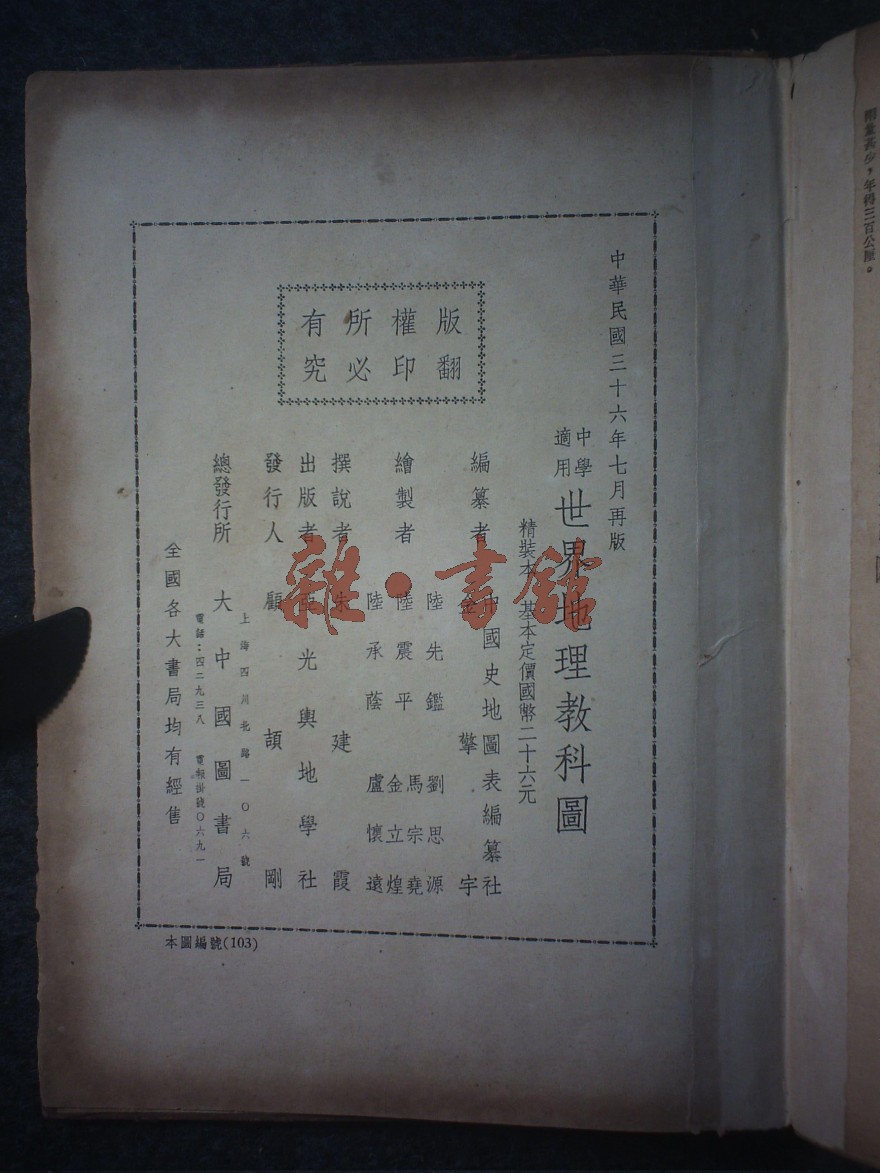 用量甚少,年得三百公厘。
中華民國三十六年七月再版
中學
適用
世界地理教科圖
精裝本 基本定價國幣二十六元
版權所有
翻印必究
編纂者 中國史地圖表編纂社
金擎宇
繪製者 陸先鑑 劉思源
馬宗堯
陸震平 金立煌
陸承蔭 盧懷遠
撰說者 朱建霞
出版者 亞光輿地學社
發行人 顧頡剛
總發行所 大中國圖書局
上海四川北路一〇六號
電話:四二九三八 電報掛號〇六九一
全國各大書局均有經售
本圖編號(103)
雜·書館